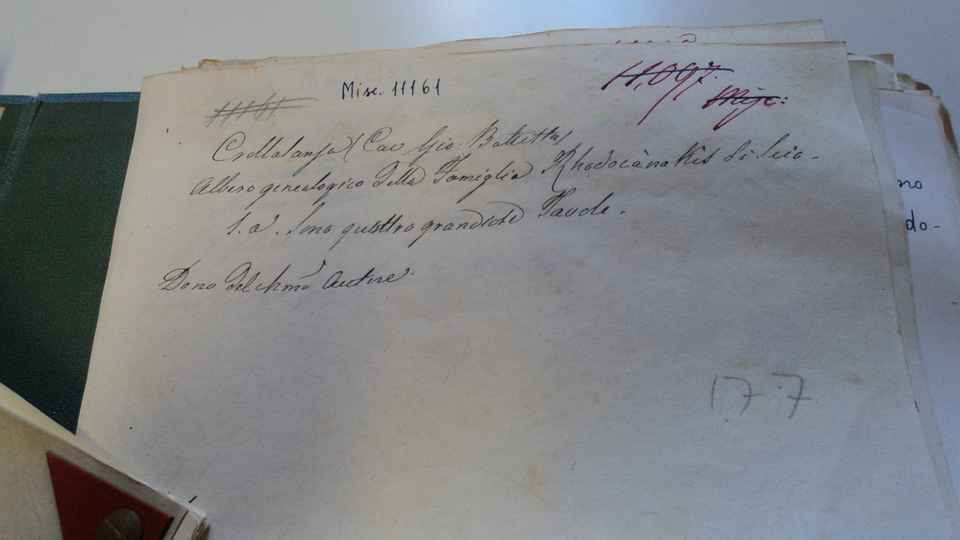 11161
Misc. 11161
11,097.
Misc:
Crollalanza (Cav Gio. Battista)
Albero genealogico della Famiglia Rhodocànakis di Scio.
S. a. Sono quattro grandiose Tavole.
Dono del chmo Autore.
177
no
do-